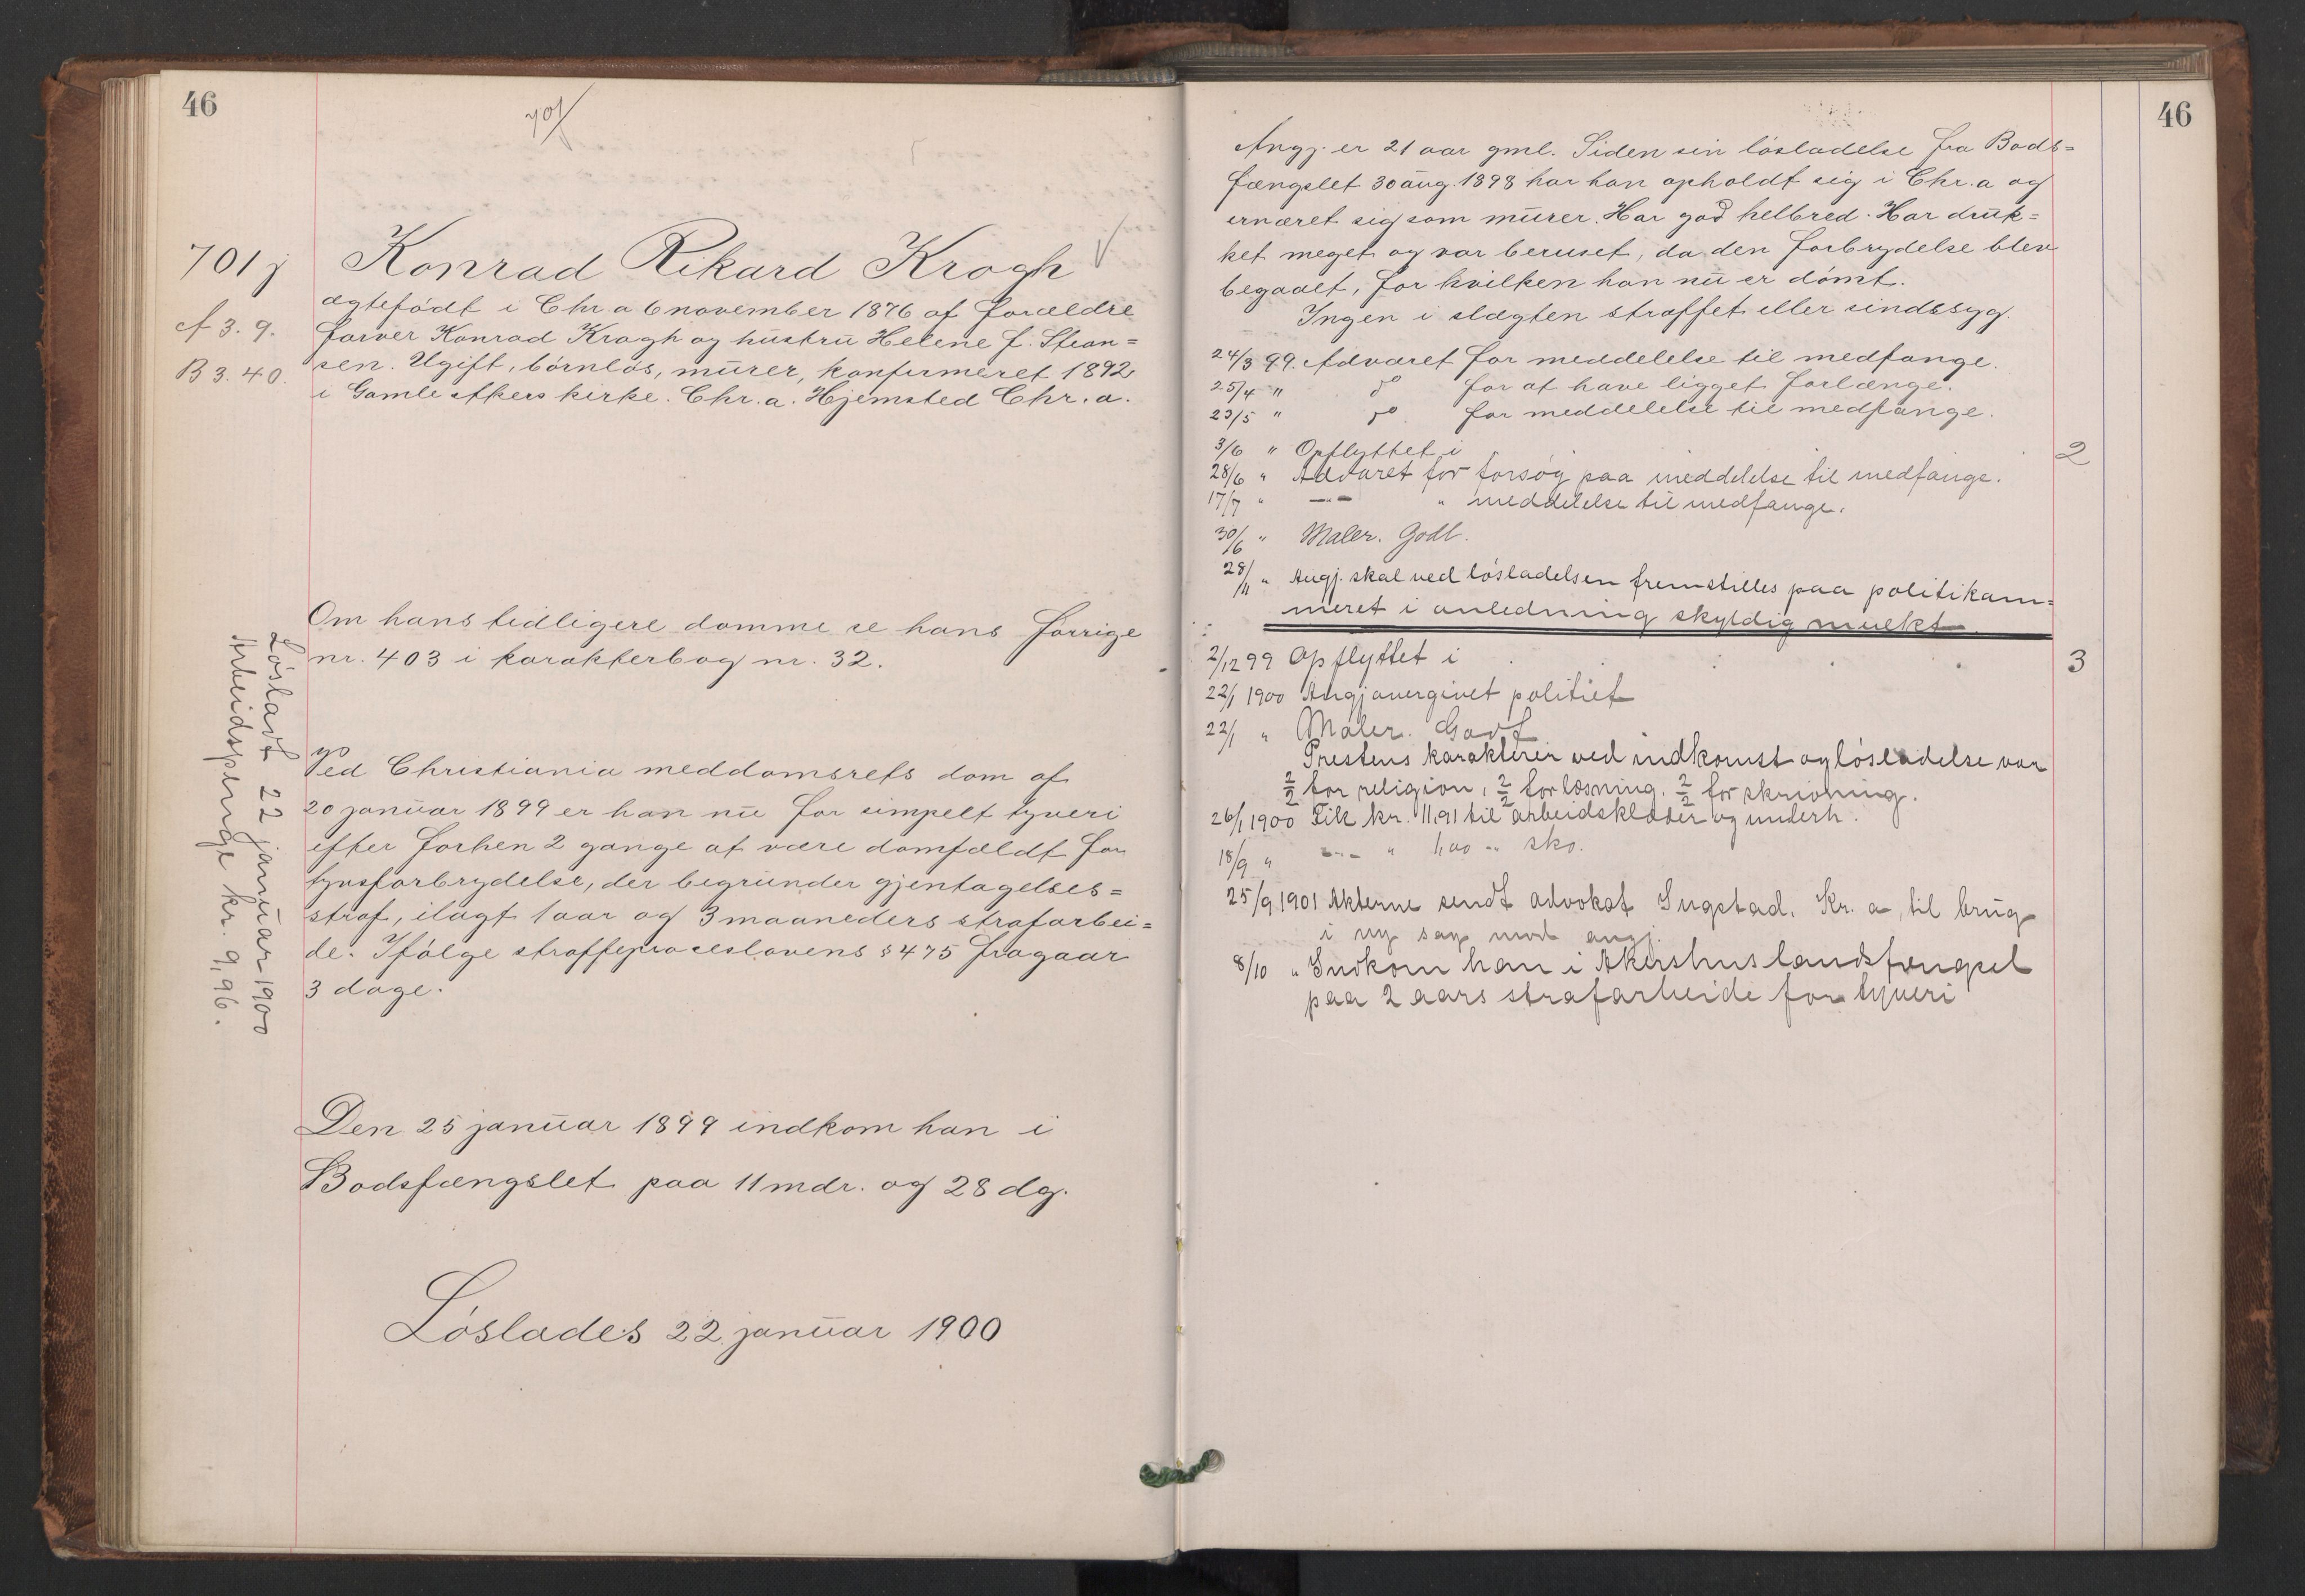 46
701
701 j
Konrad Rikard Krogh
ægtefødt i Chr a 6 november 1876 af forældre
A 3. 9.
farver Konrad Krogh og hustru Helene f. Stean=
B 3. 40.
sen. Ugift, børnløs, murer, konfirmeret 1892
i Gamle Akers kirke. Chr. a. Hjemsted Chr. a.
Om hans tidligere domme se hans forrige
nr. 403 i karakterbog nr. 32.
Løsladt 22 januar 1900
Arbeidspenge kr. 9,96.
Ved Christiania meddomsrets dom af
20 januar 1899 er han nu for simpelt tyveri
efter forhen 2 gange at være domfældt for
tyvsforbrydelse, der begrunder gjentagelses=
straf, ilagt 1 aar og 3 maaneders strafarbei=
de. Ifølge straffeproceslovens § 475 fragaar
3 dage.
Den 25 januar 1899 indkom han i
Bodsfængslet paa 11 mdr. og 28 dg.
Løslades 22 januar 1900
46
Angj. er 21 aar gml. Siden sin løsladelse fra Bods=
fængslet 30 aug. 1898 har han opholdt sig i Chr. a og
ernæret sig som murer. Har god helbred. Har druk=
ket meget og var beruset, da den forbrydelse blev
begaaet, for hvilken han nu er dømt.
Ingen i slægten straffet eller sindssyg.
24/3 99. Advaret for meddelelse til medfange.
25/4 " do for at have ligget forlænge.
23/5 " do. for meddelelse til medfange.
3/6 " Opflyttet i 2
28/6 " Advaret for forsøg paa meddelelse til medfange.
17/7 " —"— " meddelelse til medfange.
30/6 " Maler. Godt.
28/11 " Angj. skal ved løsladelsen fremstilles paa politikam=
meret i anledning skyldig mulkt.
2/12 99 Opflyttet i 3
22/1 1900 Angj overgivet politiet
22/1 " Maler. Godt
Prestens karakterer ved indkomst og løsladelse var
2/2 for religion, 2/2 for læsning. 2/2 for skrivning.
26/1 1900 Filk kr. 11,91 til arbeidsklæder og underh.
18/9 " —"— " 1,00 " sko.
25/9 1901 Akterne sendt advokat Ingstad. Kr. a, til brug
i ny sag mod angj.
8/10 " Indkom han i Akershus landsfængsel
paa 2 aars strafarbeide for tyveri